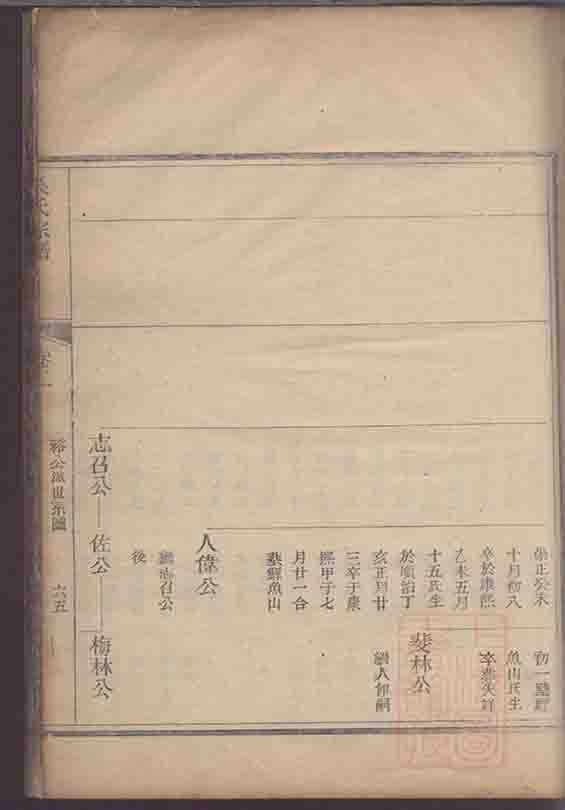 崇正癸未
十月初八
卒於康熙
乙未五月
十五氏生
於順治丁
亥正月廿
三卒于康
熙甲子七
月廿一合
墓鯉魚山
人偉公
繼志召公
後
志召公
佐公
初一墓
魚山氏生
卒葬失詳
斐林公
繼人偉嗣
梅林公
氏宗譜
卷一
裕公派世系圖
六五